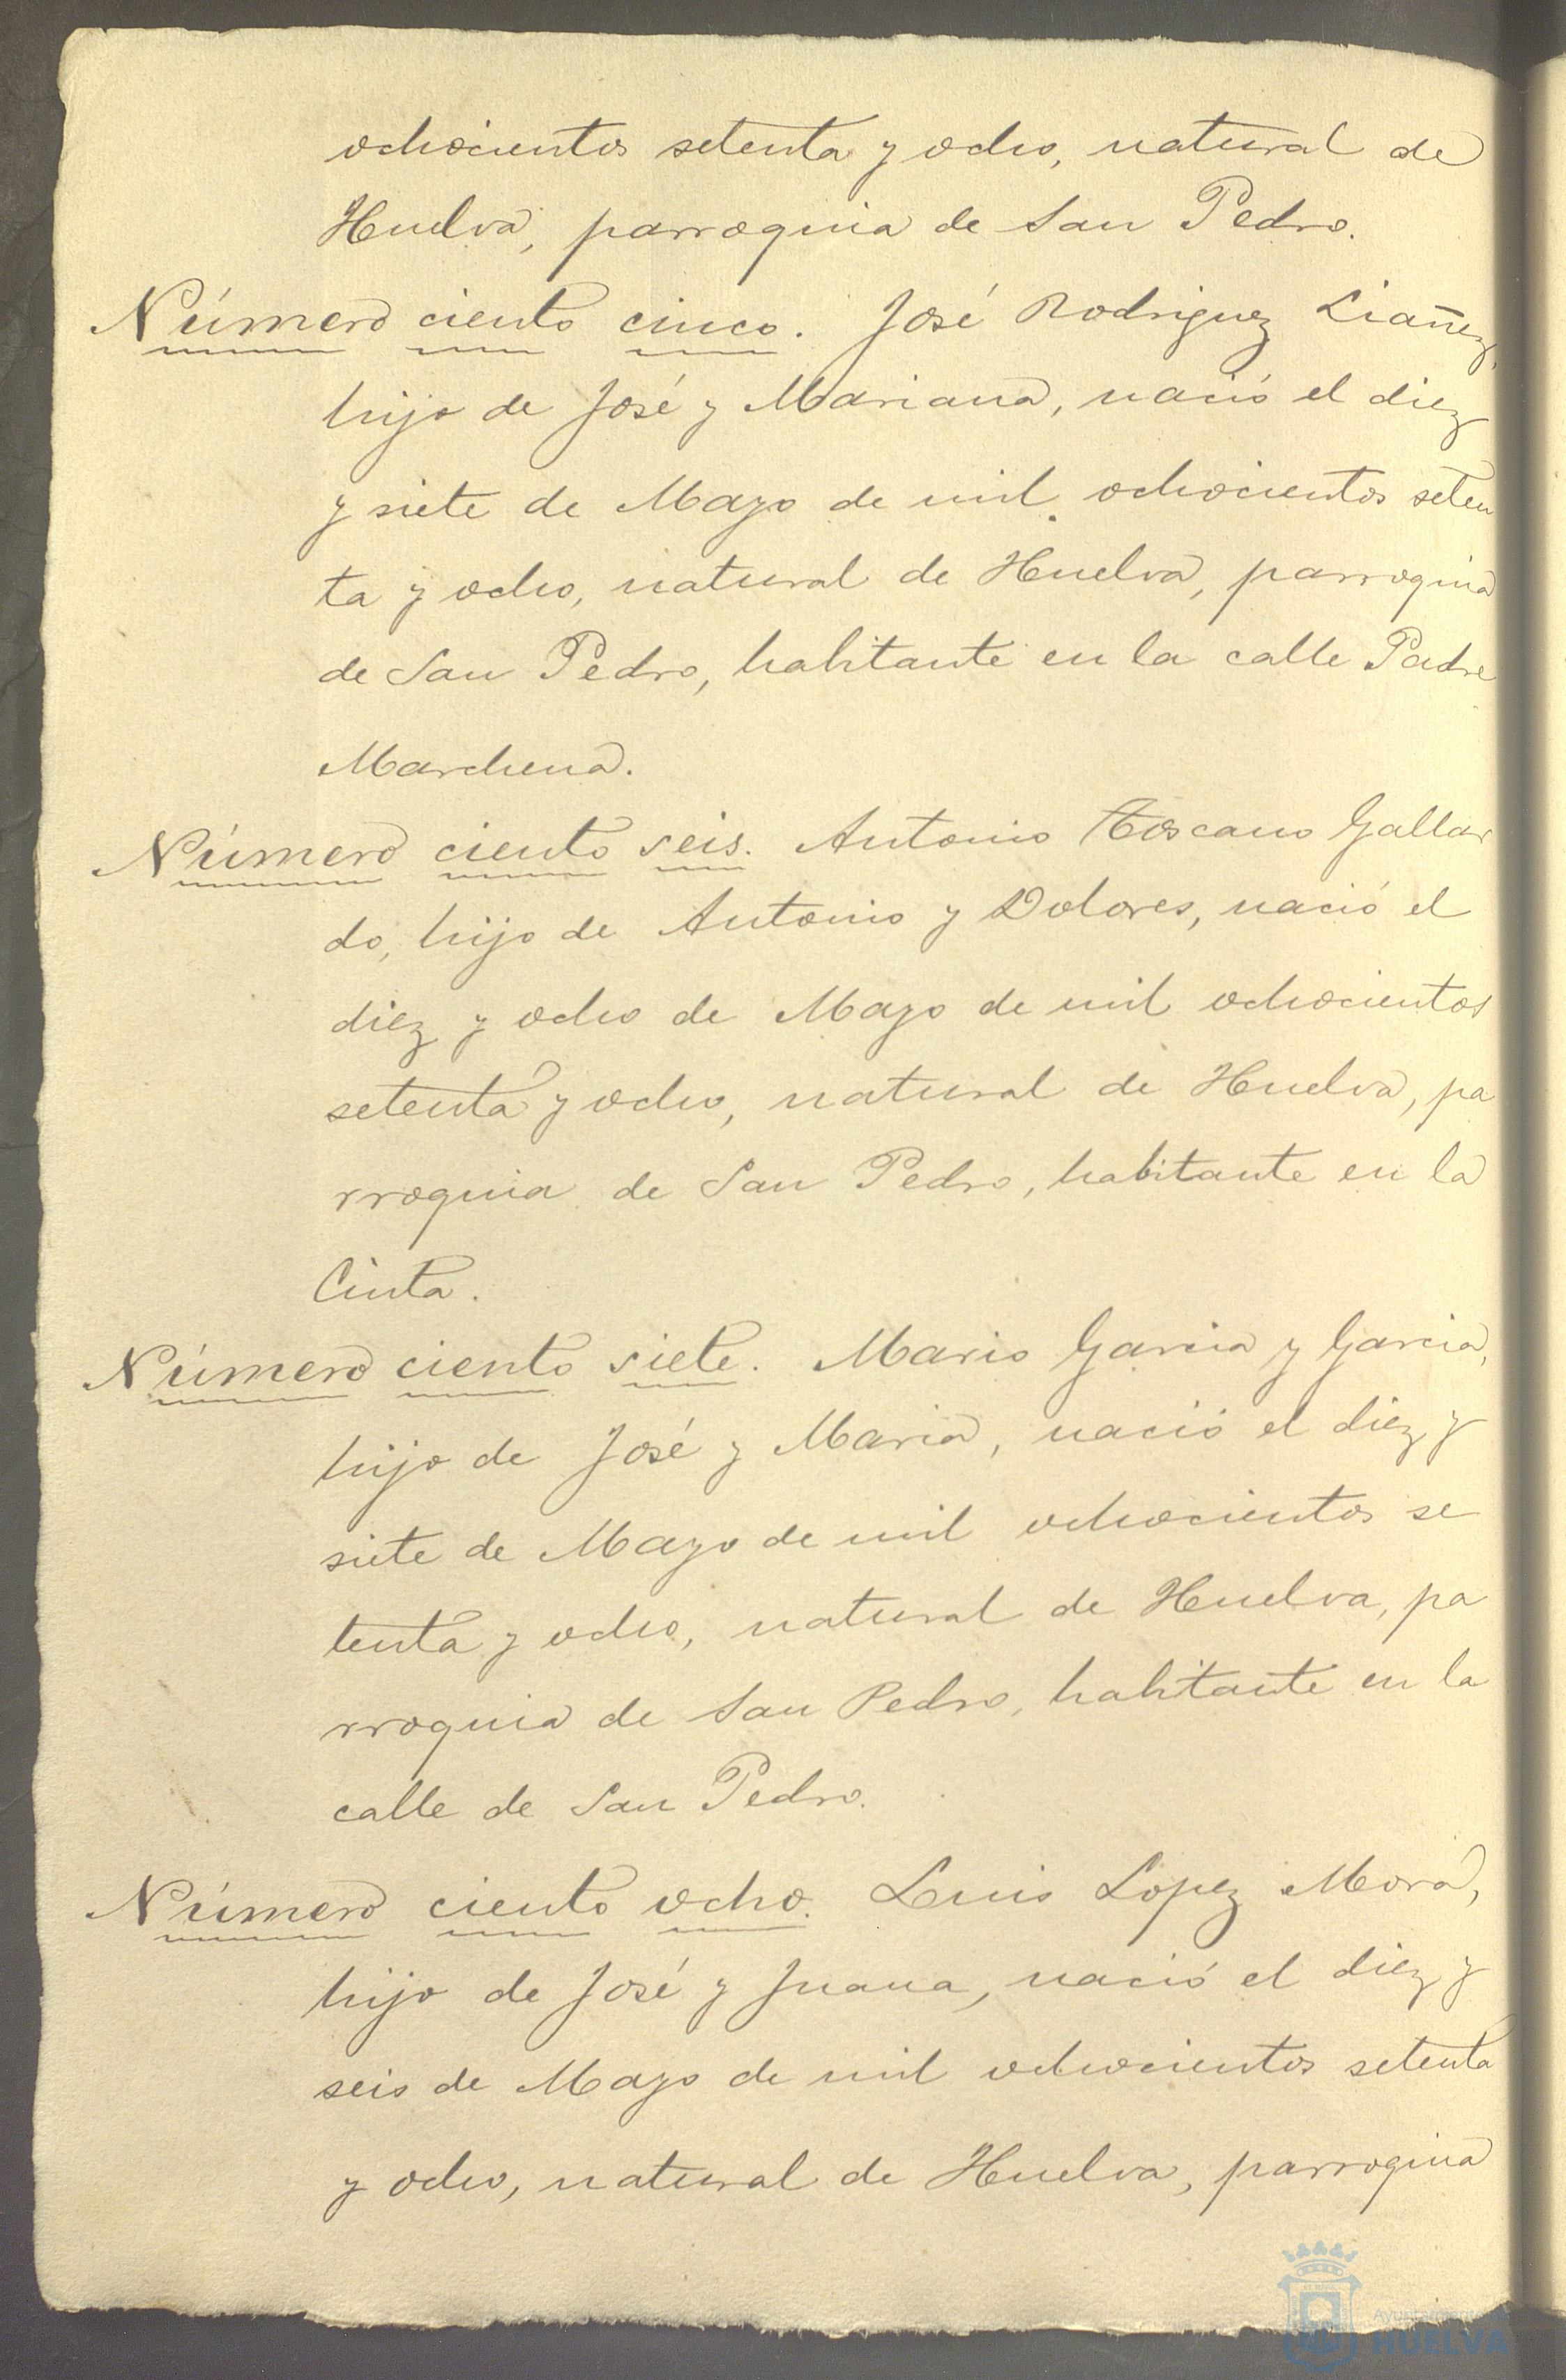 ochocientos setenta y ocho, natural de
Huelva, parroquia de San Pedro.
Número ciento cinco. José Rodriguez Liañez,
hijo de José y Mariana, nació el diez
y siete de Mayo de mil ochocientos seten
ta y ocho, natural de Huelva, parroquia
de San Pedro, habitante en la calle Padre
Marchena.
Número ciento seis. Antonio Toscano Gallar
do, hijo de Antonio y Dolores, nació el
diez y ocho de Mayo de mil ochocientos
setenta y ocho, natural de Huelva, pa
rroquia de San Pedro, habitante en la
Cinta.
Número ciento siete. Mario Garcia y Garcia,
hijo de José y Maria, nació el diez y
siete de Mayo de mil ochocientos se
tenta y ocho, natural de Huelva, pa
rroquia de San Pedro, habitante en la
calle de San Pedro.
Número ciento ocho. Luis Lopez Mora,
hijo de José y Juana, nació el diez y
seis de Mayo de mil ochocientos setenta
y ocho, natural de Huelva, parroquia
Ayuntamiento de
HUELVA